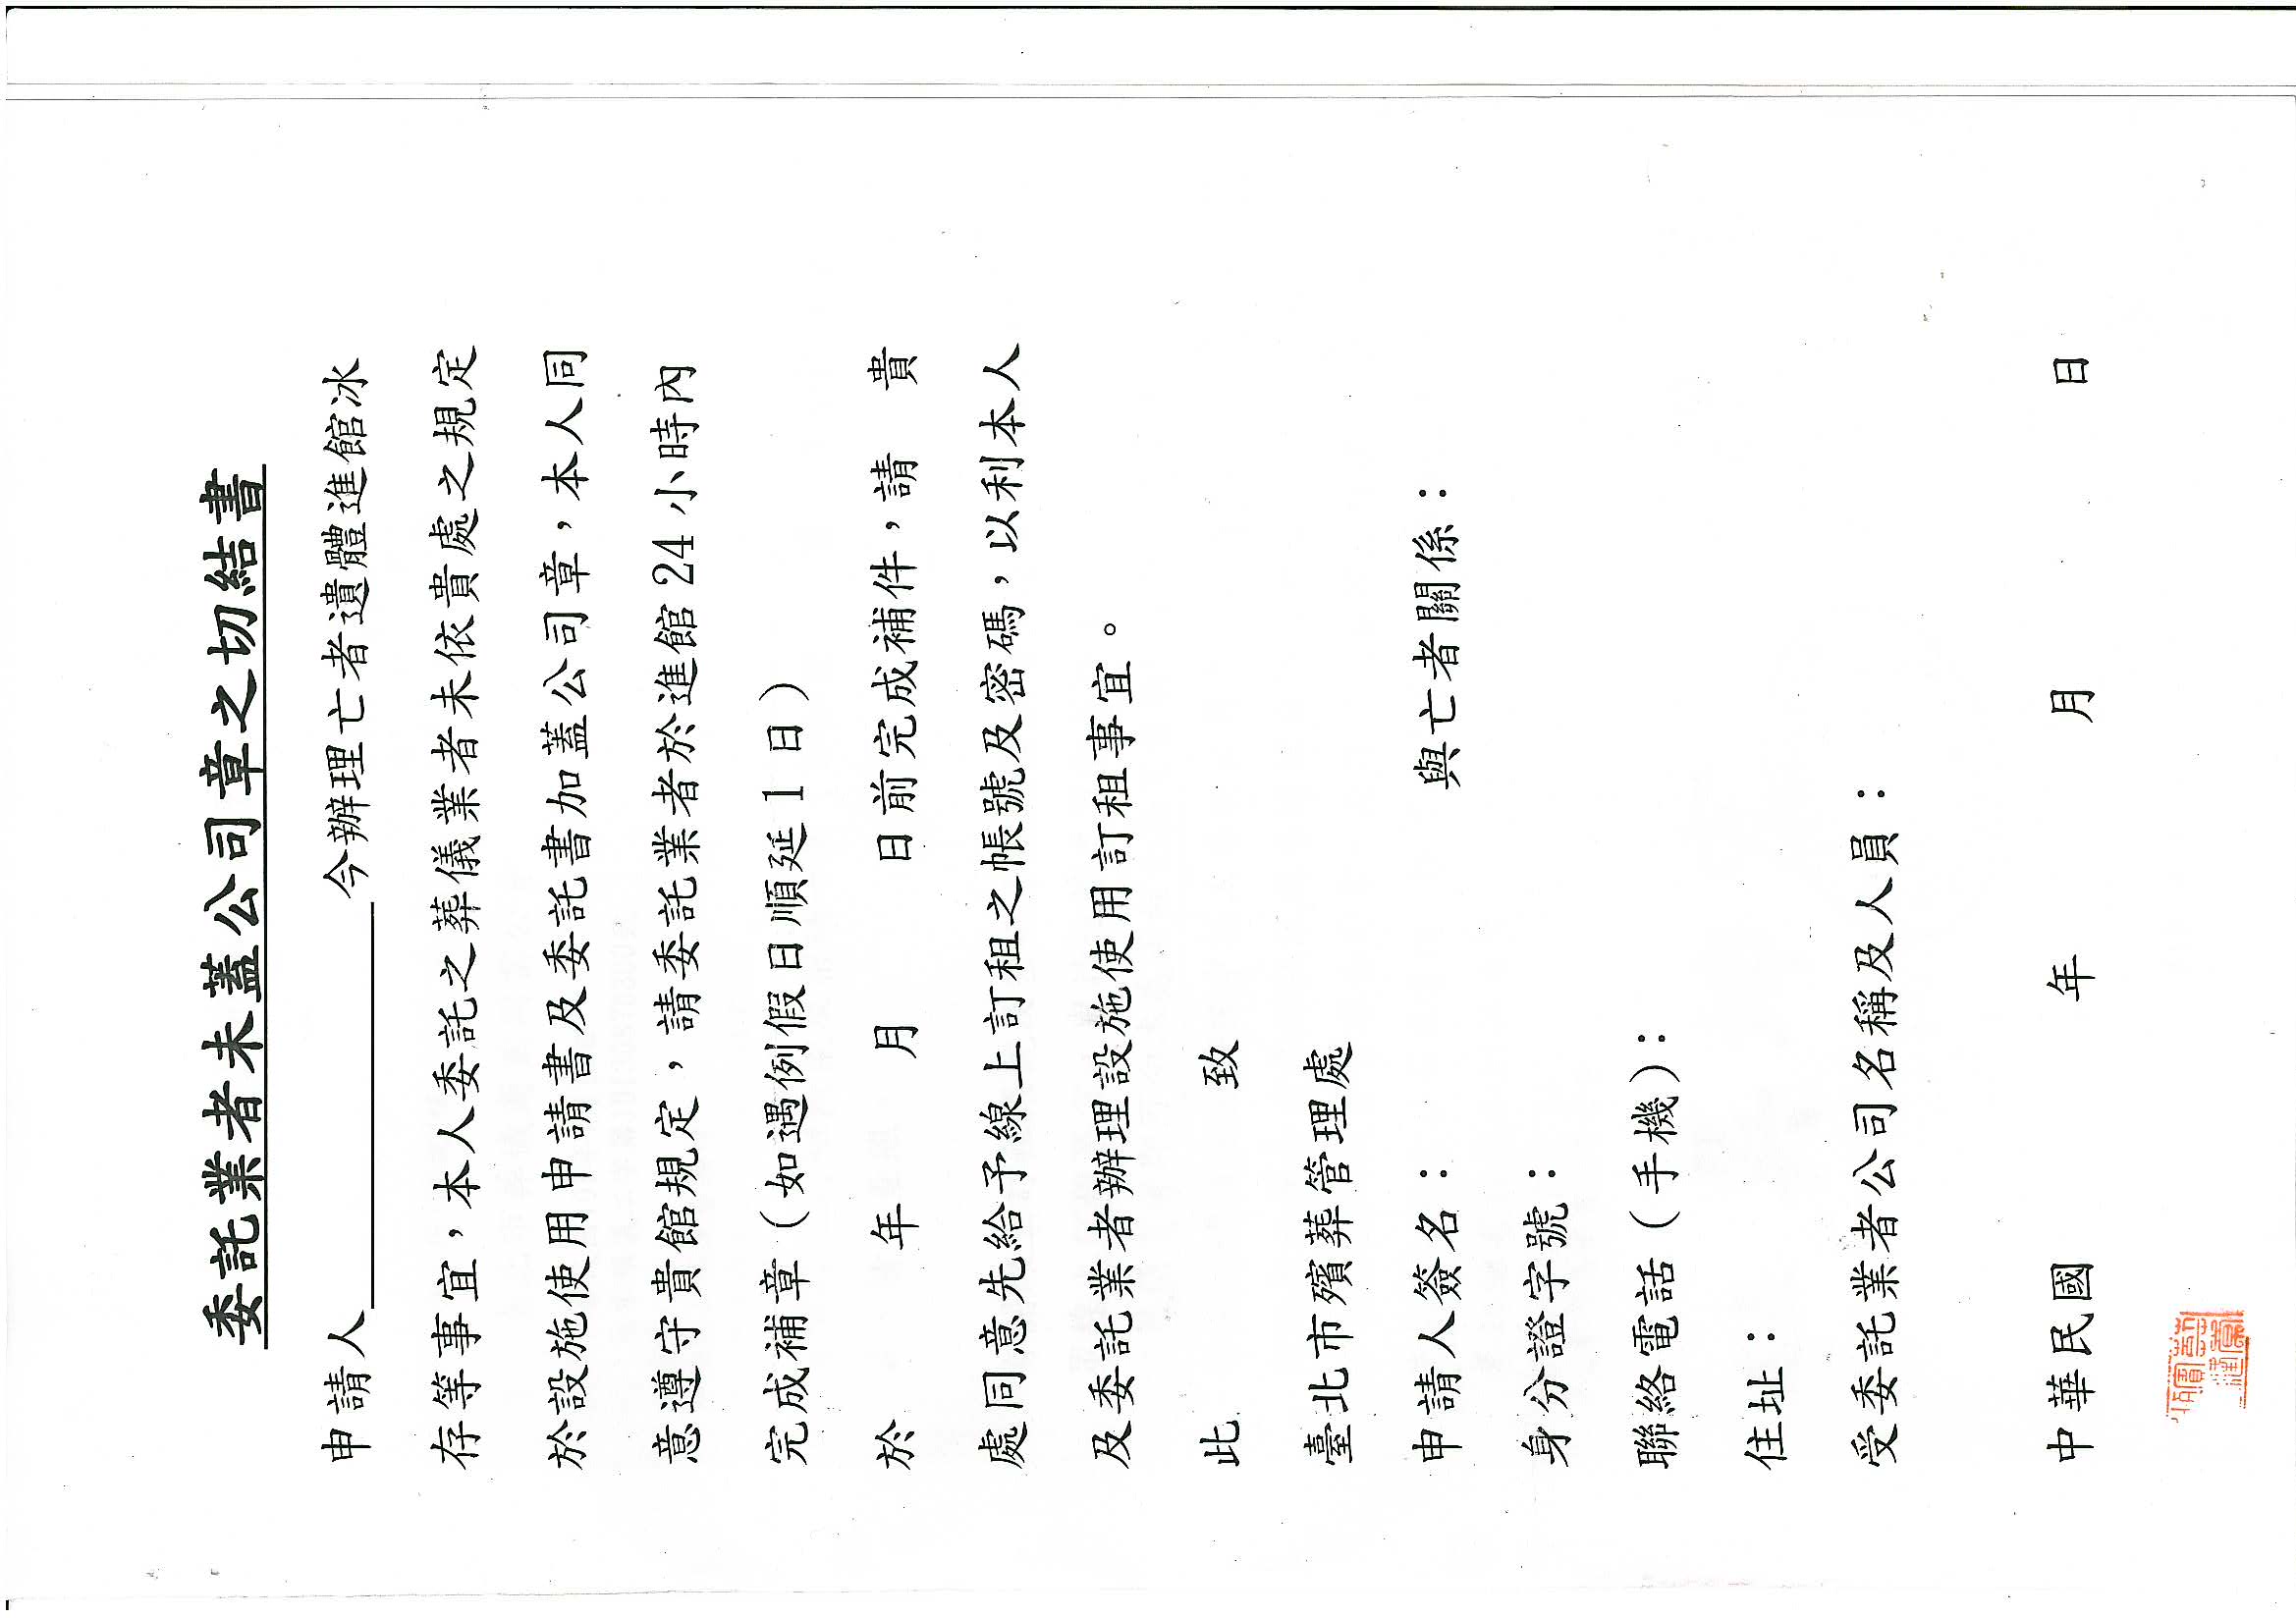 委託業者未蓋公司章之切結書
申請人＿＿＿＿＿＿＿＿今辦理亡者遺體進館冰
存等事宜，本人委託之葬儀業者未依貴處之規定
於設施使用申請書及委託書加蓋公司章，本人同
意遵守貴館規定，請委託業者於進館24小時內
完成補章（如遇例假日順延1日）
於　　　年　　　月　　　日前完成補件，請　貴
處同意先給予線上訂租之帳號及密碼，以利本人
及委託業者辦理設施使用訂租事宜。
此　　　　　致
臺北市殯葬管理處
申請人簽名：　　　　　　　　　與亡者關係：
身分證字號：
聯絡電話（手機）：
住址：
受委託業者公司名稱及人員：
中華民國　　　　　年　　　　　月　　　　　日